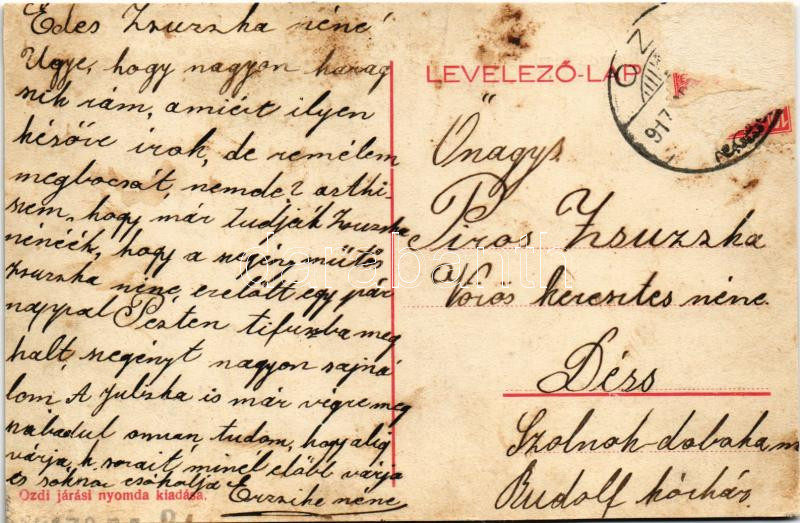 Édes Zsuzska néné!
Ugye, hogy nagyon harag
szik rám, amiért ilyen
későre irok, de remélem
megbocsát, nemde? azthi-
szem, hogy már tudják Zsuzska
nénéék, hogy a szegény
Zsuzska néné, ezelőtt egy pár
nappal Pesten tifuszba meg
halt szegényt nagyon sajná
lom. A Juliska is már végre meg
szabadul onnan tudom, hogy alig
várja, k. sorait minél előbb várja
és sokszor csókolja
Erzsike néne
Ozdi járási nyomda kiadása.
LEVELEZŐ-LAP
Őnagys.
Piros Zsuzska
a Vörös keresztes néne.
Dézs
Szolnok-doboka m
Rudolf kórház.
OZ
917
darabanth